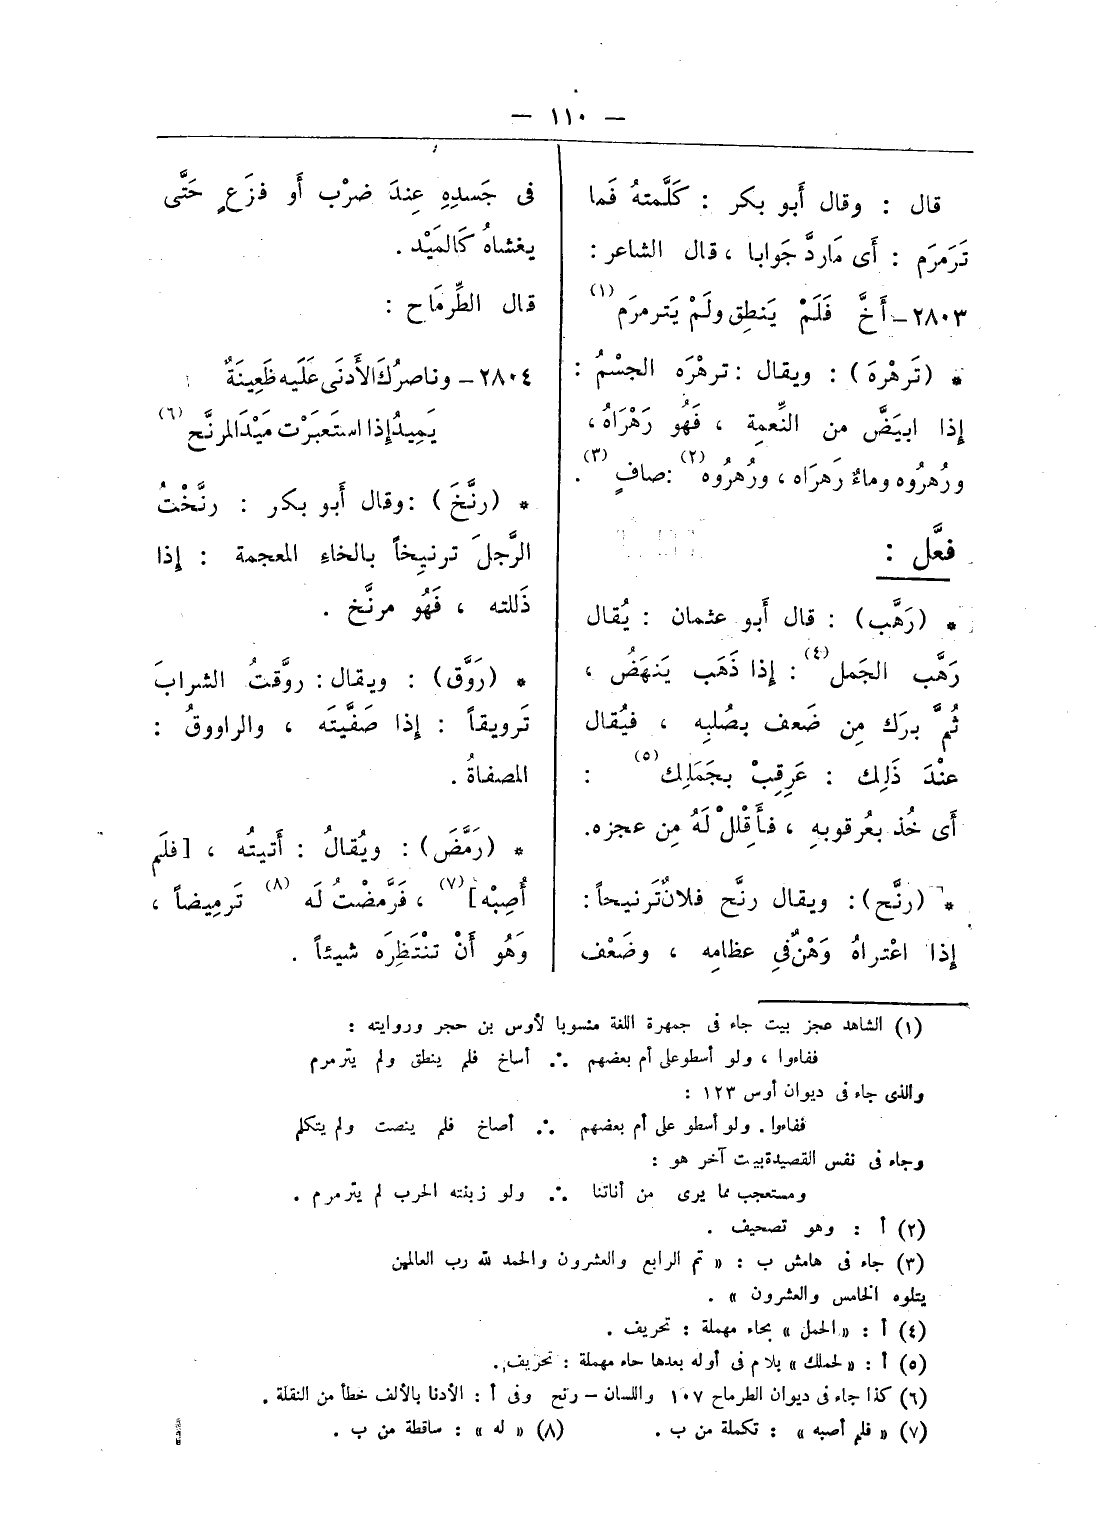 — ١١٠ —
قال : وقال أَبو بكر : كَلَّمتهُ فَما
تَرَمرَم : أَى مَاردَّ جَوابا ، قال الشاعر :
٢٨٠٣ – أَخَّ فَلَمْ يَنطِق ولَمْ يَترمرَم (١)
* (تَرهْرهَ) : ويقال : ترهْرَه الجسْمُ :
إذا ابيَضَّ من النِّعمِة ، فَهُو رَهْرَاهُ ،
ورُهرُوه وماءٌ رَهرَاه ، ورُهرُوه (٢) : صافٍ (٣) .
فعَّل :
* (رَهَّب) : قال أَبو عثمان : يُقال
رَهَّب الجَمل (٤) : إذا ذَهَب يَنهَضُ ،
ثُمَّ برَك مِن ضَعف بصُلبِه ، فيُقال
عنْدَ ذَلِك : عَرقِبْ بجَمَلِك (٥) :
أَى خُذ بعُرقوبهِ ، فأَقِلل لَهُ مِن عجزه.
* (رنَّح) : ويقال رنَّح فلانٌ تَرنيحاً :
إذا اعْتراهُ وَهْنٌ فى عظامِه ، وضَعْف
فى جَسدِهِ عِندَ ضرْب أَو فزَعٍ حَتَّى
يغشاهُ كَالميْد .
قال الطِّرمَاح :
٢٨٠٤ – وناصرُكَ الأَدنَى عَلَيه ظَعِينَةٌ
يَمِيدُ إذا استَعبَرْت مَيْدَ المرنَّح (٦)
* (رنَّخَ) : وقال أَبو بكر : رنَّخْتُ
الرَّجلَ ترنيخاً بالخاءِ المعجمة : إذا
ذَللته ، فَهُو مرنَّخ .
* (رَوَّق) : ويقال : روَّقتُ الشرابَ
تَرويقاً : إذا صَفَّيتَه ، والراووقُ :
المصفاةُ .
* (رَمَّضَ) : ويُقالُ : أَتيتُه ، [فلَم
أُصِبْه] (٧) ، فَرَّمضْتُ لَه (٨) تَرميضاً ،
وَهُو أَنْ تنْتَظِرَه شيئاً .
(١) الشاهد عجز بيت جاء فى جمهرة اللغة منسوبا لأوس بن حجر وروايته :
ففاءوا ، ولو أسطو على أم بعضهم ∴ أساخ فلم ينطق ولم يترمرم
والذى جاء فى ديوان أوس ١٢٣ :
ففاءوا . ولو أسطو على أم بعضهم ∴ أصاخ فلم ينصت ولم يتكلم
وجاء فى نفس القصيدة بيت آخر هو :
ومستعجب مما يرى من أناتنا ∴ ولو زبنته الحرب لم يترمرم .
(٢) أ : وهو تصحيف .
(٣) جاء فى هامش ب : « تم الرابع والعشرون والحمد لله رب العالمين
يتلوه الخامس والعشرون » .
(٤) أ : « الحمل » بحاء مهملة : تحريف .
(٥) أ : « لحملك » بلام فى أوله بعدها حاء مهملة : تحريف .
(٦) كذا جاء فى ديوان الطرماح ١٠٧ واللسان – رنح وفى أ : الأدنا بالألف خطأ من النقلة .
(٧) « فلم أصبه » : تكملة من ب . (٨) « له » : ساقطة من ب .